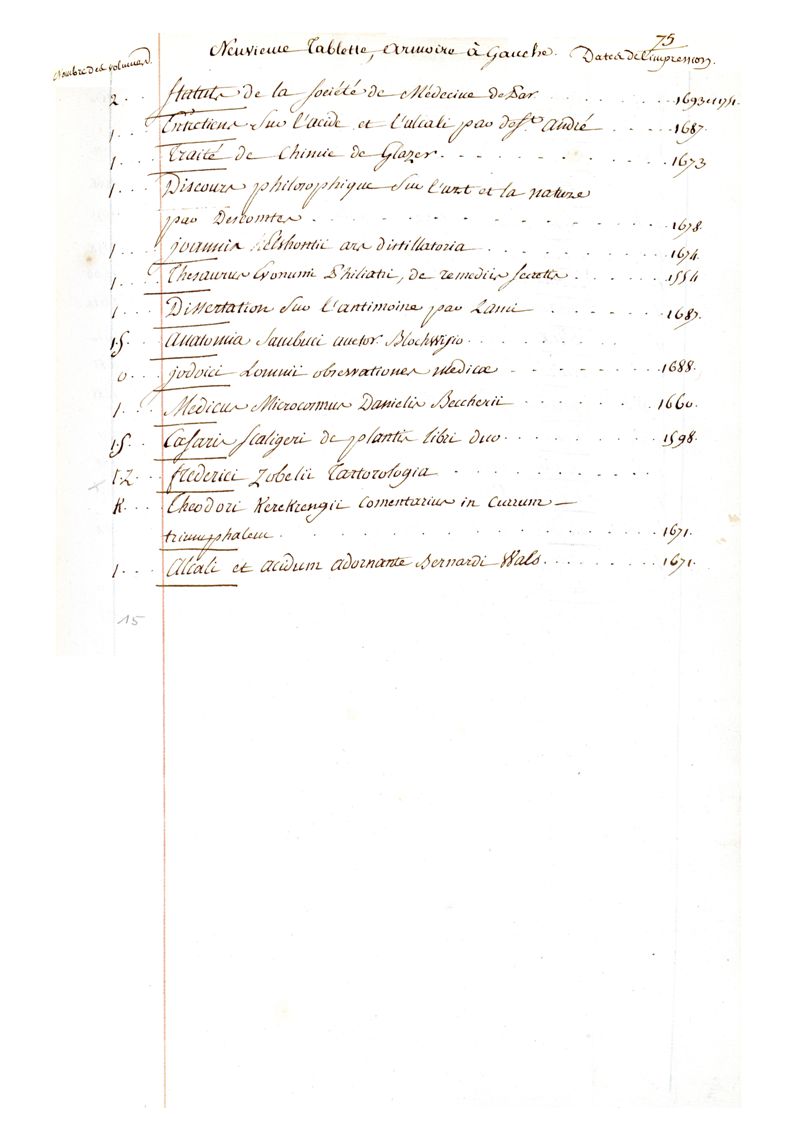 75
Nombre des volumes. Neuvieme Tablette, armoire à Gauche. Dates de l'impression.
2 . . Statuts de la Société de Médecine de Par . . . . . . . 1693.
1 . . . Entretiens sur l'acide et l'alcali par de St André . . . . 1687.
1 . . . Traité de Chimie de Glazer . . . . . . . . . 1673
1 . . . Discours philosophique sur l'art et la nature
par Descomtes . . . . . . . . . . . 1678
1 . . . joannis Elshontii ars distillatoria . . . . . . . 1674.
1 . . . Thesaurus Evonumi Philiatri, de remediis secretis . . . . 1554
1 . . . Dissertation sur l'antimoine par Lami . . . . . 1687.
1.5 . . anatomia Sambuci auctor. Blochwisio . . . . . . .
0 . . . jodoici Lommii observationes medicæ . . . . . . . 1688.
1 . . . Medicus Microcosmus Danielis Beccherii . . . . . . 1660.
1.5 . . Cæsaris Scaligeri de plantis libri duo . . . . . . . 1598.
1.2 . . frederici Zobelii Tartorologia . . . . . . . .
K . . . Theodori Kerekrengii Comentarius in Currum —
triumphalem . . . . . . . . . . . . 1671.
1 . . . Alcali et acidum adornante Bernardi Wals . . . . . 1671.
15